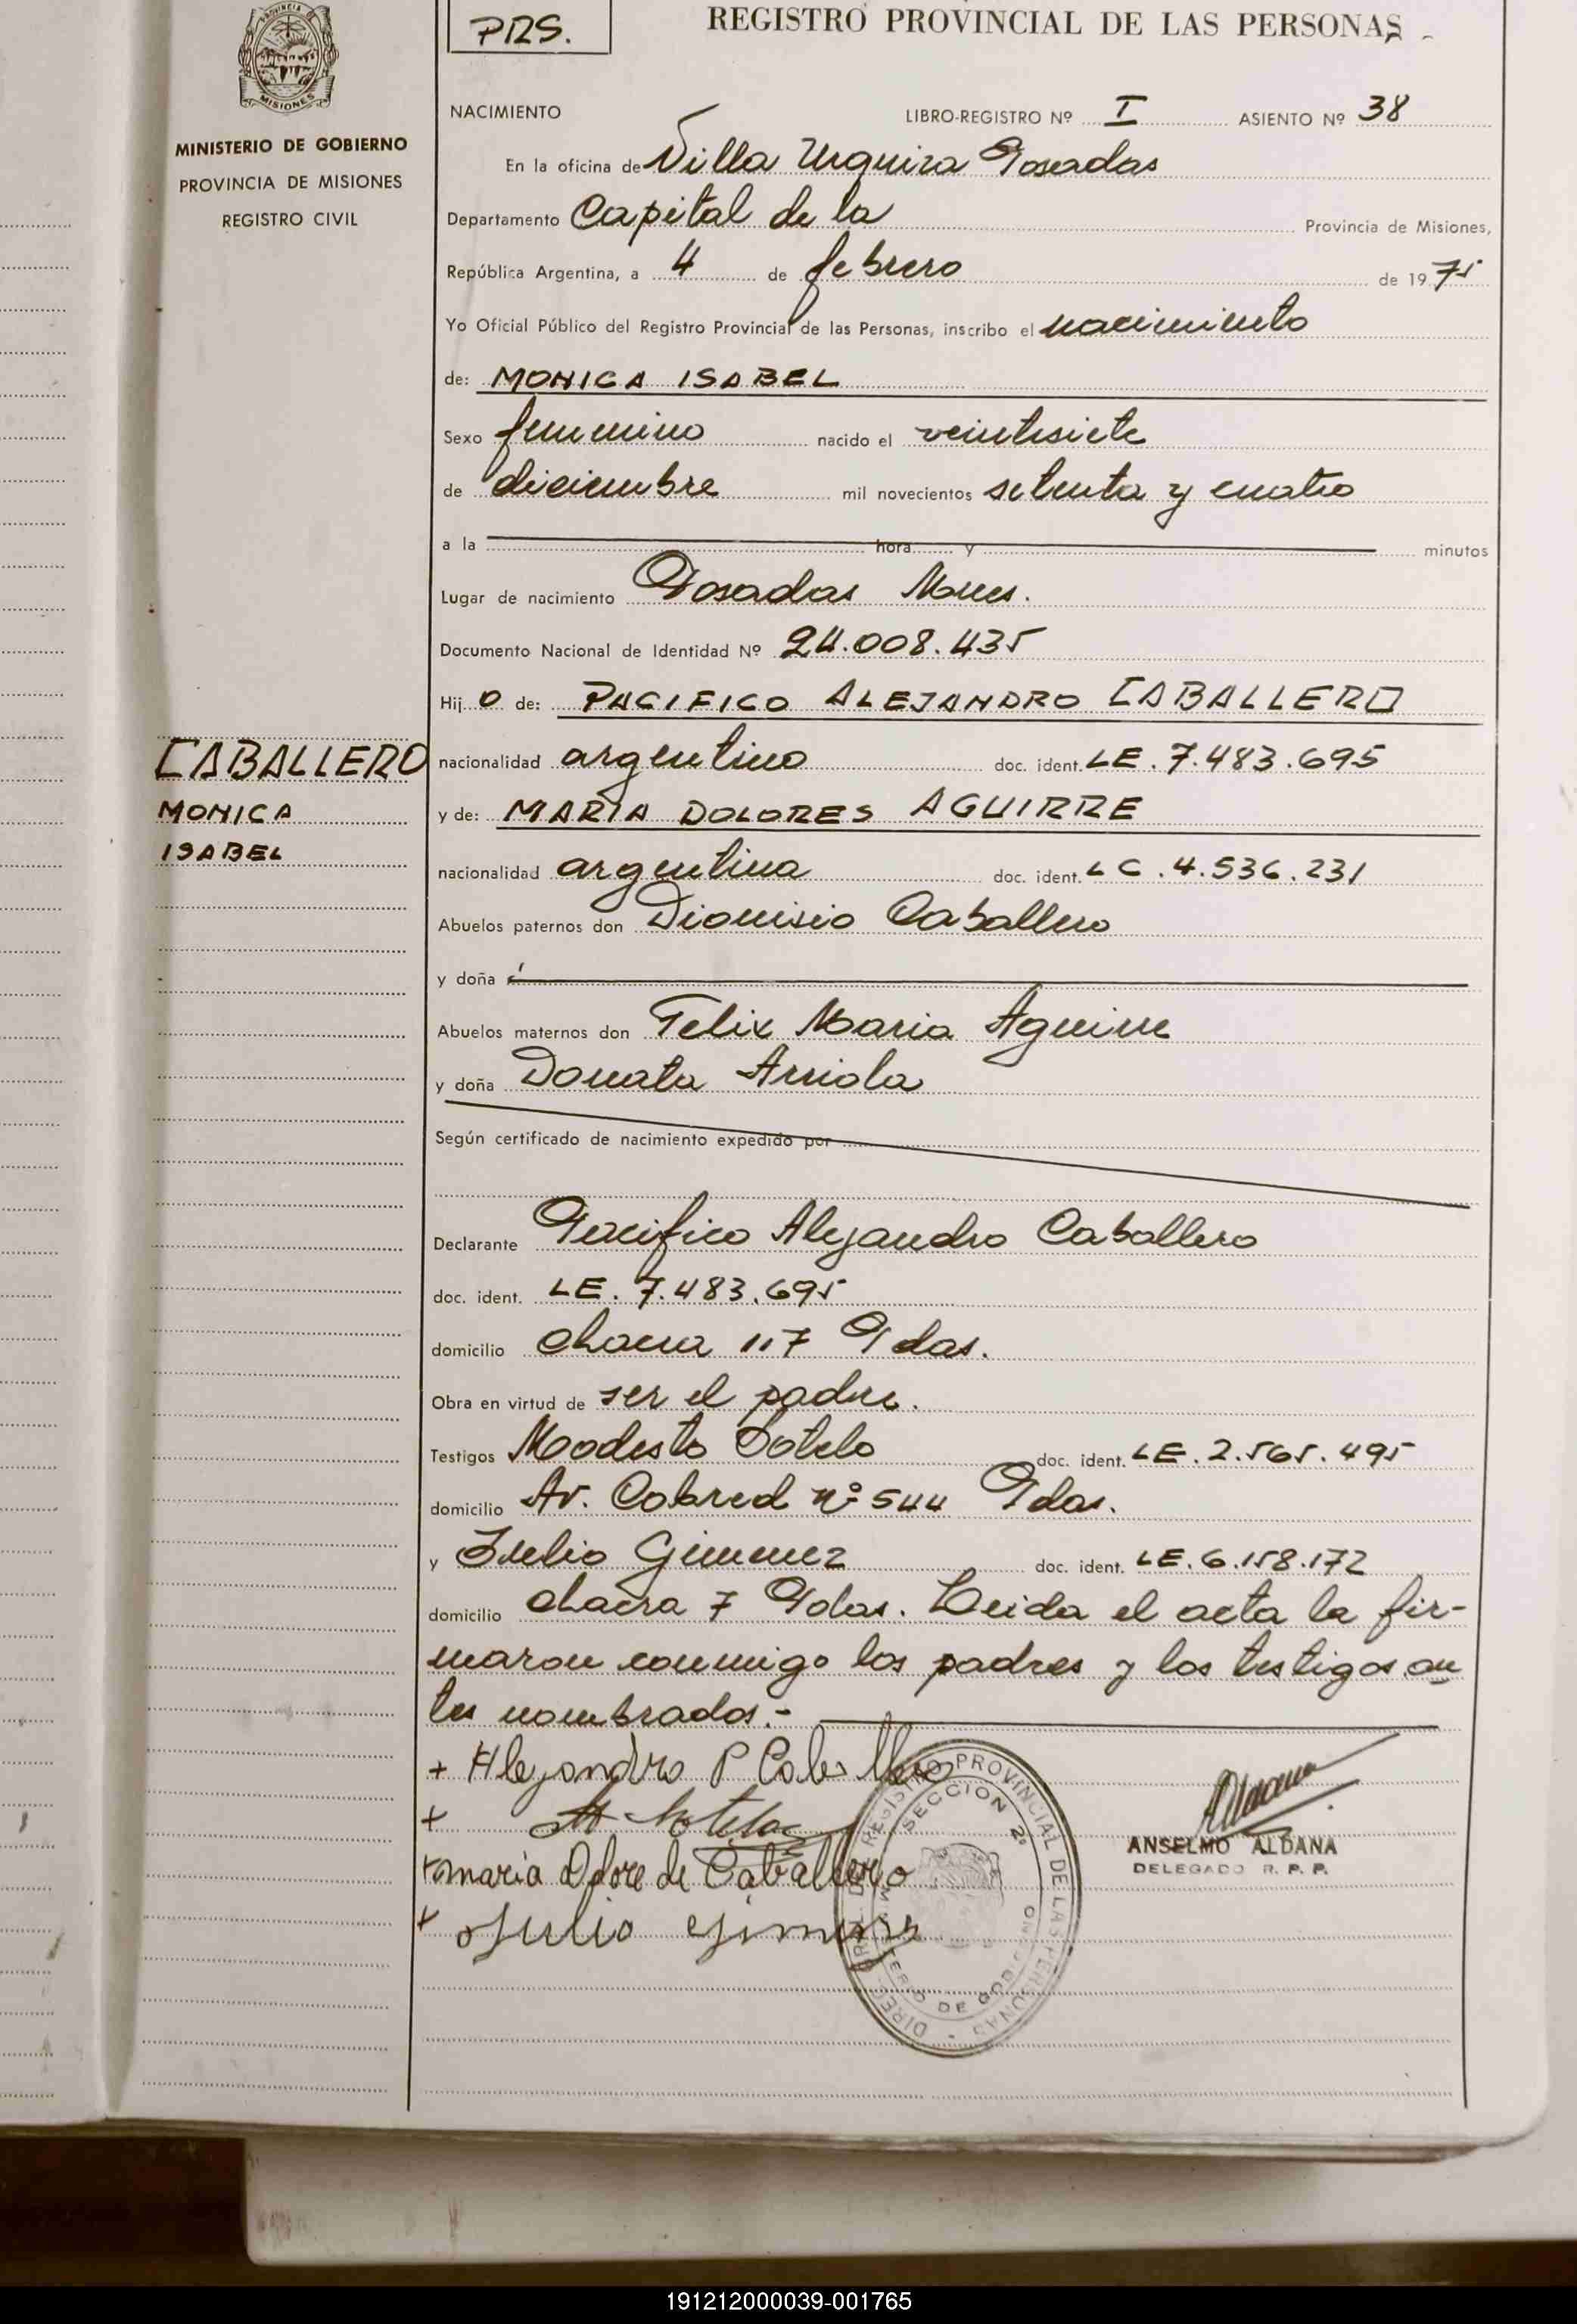 PRS.
REGISTRO PROVINCIAL DE LAS PERSONAS
PROVINCIA
MISIONES
MINISTERIO DE GOBIERNO
PROVINCIA DE MISIONES
REGISTRO CIVIL
NACIMIENTO LIBRO-REGISTRO Nº I ASIENTO Nº 38
En la oficina de Villa Urquiza Posadas
Departamento Capital de la Provincia de Misiones,
República Argentina, a 4 de febrero de 1975
Yo Oficial Público del Registro Provincial de las Personas, inscribo el nacimiento
de: MONICA ISABEL
Sexo femenino nacido el veintisiete
de diciembre mil novecientos setenta y cuatro
a la hora y minutos
Lugar de nacimiento Posadas Mnes.
Documento Nacional de Identidad Nº 24.008.435
Hijo de: PACIFICO ALEJANDRO CABALLERO
CABALLERO
MONICA
ISABEL
nacionalidad argentino doc. ident. LE. 7.483.695
y de: MARIA DOLORES AGUIRRE
nacionalidad argentina doc. ident. LC. 4.536.231
Abuelos paternos don Dionisio Caballero
y doña
Abuelos maternos don Felix Maria Aguirre
y doña Donata Arriola
Según certificado de nacimiento expedido por
Declarante Pacifico Alejandro Caballero
doc. ident. LE. 7.483.695
domicilio chacra 117 Pdas.
Obra en virtud de ser el padre.
Testigos Modesto Sotelo doc. ident. LE. 2.565.495
domicilio Av. Cabred nº 544 Pdas.
y Julio Gimenez doc. ident. LE. 6.158.172
domicilio chacra 7 Pdas. Leida el acta la fir-
maron conmigo los padres y los testigos an
tes nombrados.-
+ Alejandro P Caballero
+ M Sotelo
+ maria Dolore de Caballero
+ Julio Gimenez
DIREC. GRAL. DEL REGISTRO PROVINCIAL DE LAS PERSONAS
SECCION 2º
MINISTERIO DE GOBIERNO
ANSELMO ALDANA
DELEGADO R. P. P.
191212000039-001765